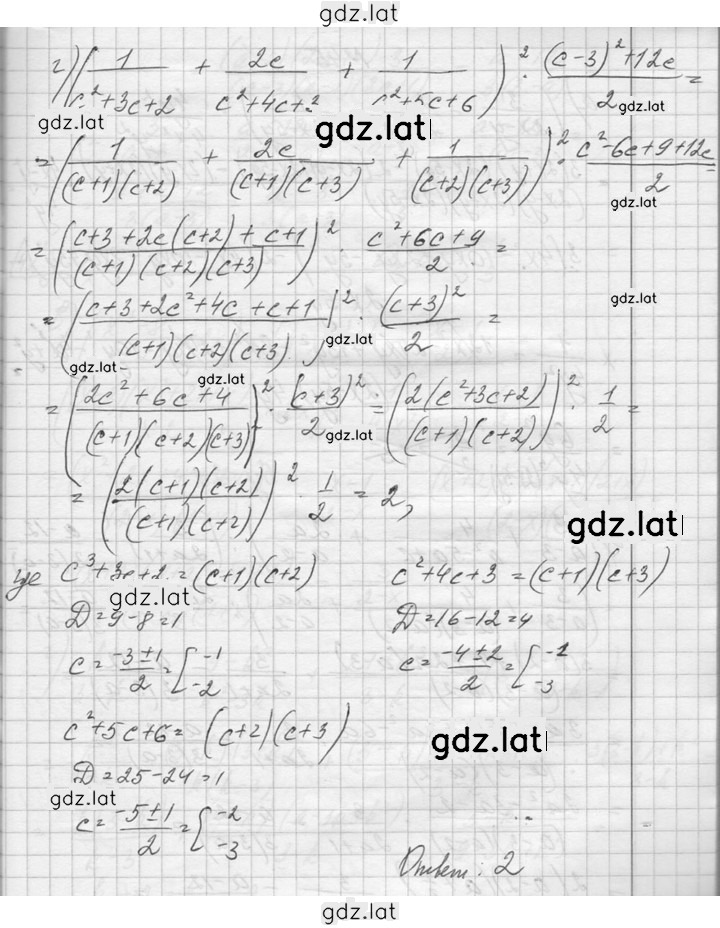 gdz.lat
г) (1/(c²+3c+2) + 2c/(c²+4c+3) + 1/(c²+5c+6))² · ((c-3)²+12c)/2 =
gdz.lat gdz.lat gdz.lat
= (1/((c+1)(c+2)) + 2c/((c+1)(c+3)) + 1/((c+2)(c+3)))² · (c²-6c+9+12c)/2 =
gdz.lat
= ((c+3+2c(c+2)+c+1)/((c+1)(c+2)(c+3)))² · (c²+6c+9)/2 =
gdz.lat
= ((c+3+2c²+4c+c+1)/((c+1)(c+2)(c+3)))² · (c+3)²/2 =
gdz.lat gdz.lat
gdz.lat gdz.lat
= ((2c²+6c+4)/((c+1)(c+2)(c+3)))² · (c+3)²/2 = (2(c²+3c+2)/((c+1)(c+2)))² · 1/2 =
gdz.lat
= (2(c+1)(c+2)/((c+1)(c+2)))² · 1/2 = 2,
gdz.lat
где c³+3c+2 = (c+1)(c+2) c²+4c+3 = (c+1)(c+3)
gdz.lat
D=9-8=1 D=16-12=4
c = (-3±1)/2 = [-1 -2 c = (-4±2)/2 = [-1 -3
c²+5c+6 = (c+2)(c+3)
gdz.lat
D=25-24=1
gdz.lat
c = (-5±1)/2 = [-2 -3
Ответ: 2
gdz.lat